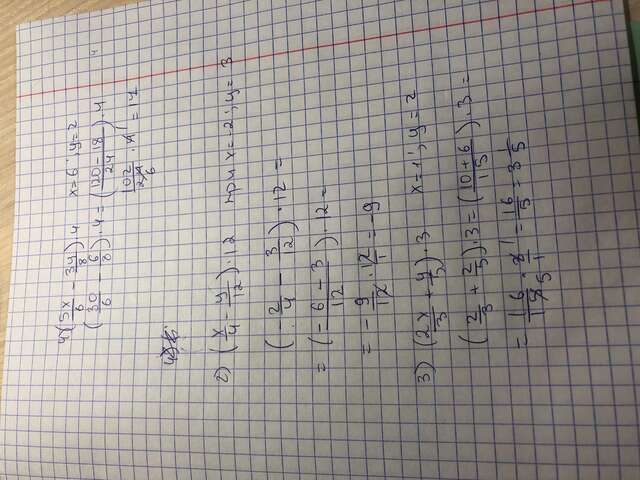 4) (5x/6 - 3y/8) · 4   x=6; y=2
(30/6 - 6/8) · 4 = (120-18/24) · 4
102/24 · 4 = 17
6
2) (x/4 - y/12) · 12   при x=-2; y=3
(-2/4 - 3/12) · 12 =
= (-6-3/12) · 12 =
= -9/12 · 12/1 = -9
3) (2x/3 + y/5) · 3   x=1; y=2
(2/3 + 2/5) · 3 = (10+6/15) · 3 =
= 16/15 · 3/1 = 16/5 = 3 1/5
5